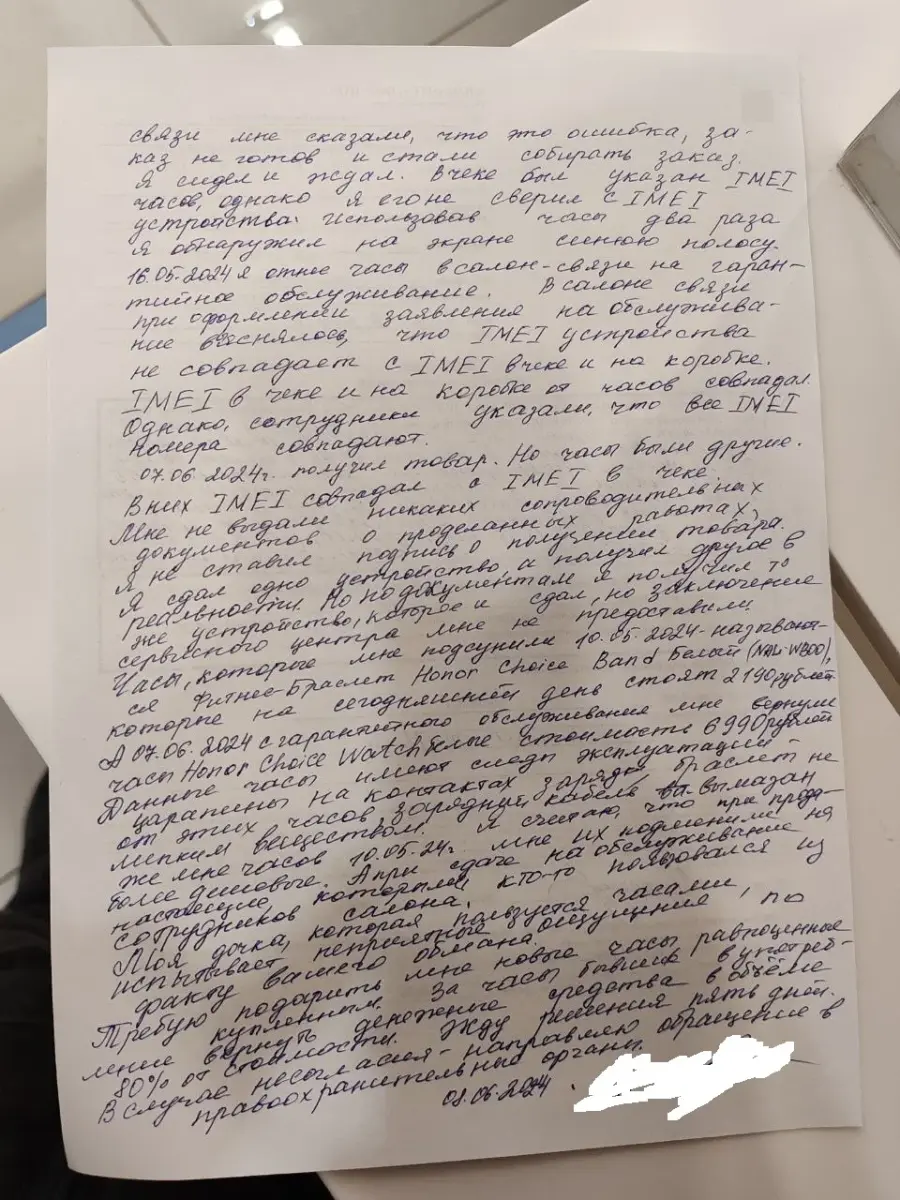 связи мне сказали, что это ошибка, за-
каз не готов и стали собирать заказ.
Я сидел и ждал. В чеке был указан IMEI
часов, однако я его не сверил с IMEI
устройства. Использовав часы два раза
я обнаружил на экране синюю полосу.
16.05.2024 я отнес часы в салон-связи на гаран-
тийное обслуживание. В салоне связи
при оформлении заявления на обслужива-
ние выяснялось, что IMEI устройства
не совпадает с IMEI в чеке и на коробке.
IMEI в чеке и на коробке от часов совпадал.
Однако, сотрудники указали, что все IMEI
номера совпадают.
07.06.2024г. получил товар. Но часы были другие.
В них IMEI совпадал с IMEI в чеке.
Мне не выдали никаких сопроводительных
документов о проделанных работах,
Я не ставил подпись о получении товара.
Я сдал одно устройство, а получил другое в
реальности. По документам я получил то
же устройство, которое и сдал, но заключение
сервисного центра мне не предоставили.
Часы, которые мне подсунули 10.05.2024 - называют-
ся Фитнес-браслет Honor Choice Band Белый
которые на сегодняшний день стоят 2190 рублей
А 07.06.2024 с гарантийного обслуживания мне вернули
часы Honor Choice Watch белые стоимость 6990 рублей
Данные часы имеют следы эксплуатации -
царапины на контактах зарядки, браслет не
от этих часов, зарядный кабель вымазан
липким веществом. Я считаю, что при прода-
же мне часов 10.05.24г. мне их подменили на
более дешовые. А при сдаче на обслуживание на
настоящие, которыми кто-то пользовался из
сотрудников салона.
Моя дочка, которая пользуется часами,
испытывает неприятные ощущения, по
факту вашего обмана.
Требую подарить мне новые часы равноценные
купленным. За часы бывшие в употреб-
ление вернуть денежные средства в объёме
80% от стоимости. Жду решения пять дней.
В случае несогласия - направляю обращение в
правоохранительные органы.
08.06.2024